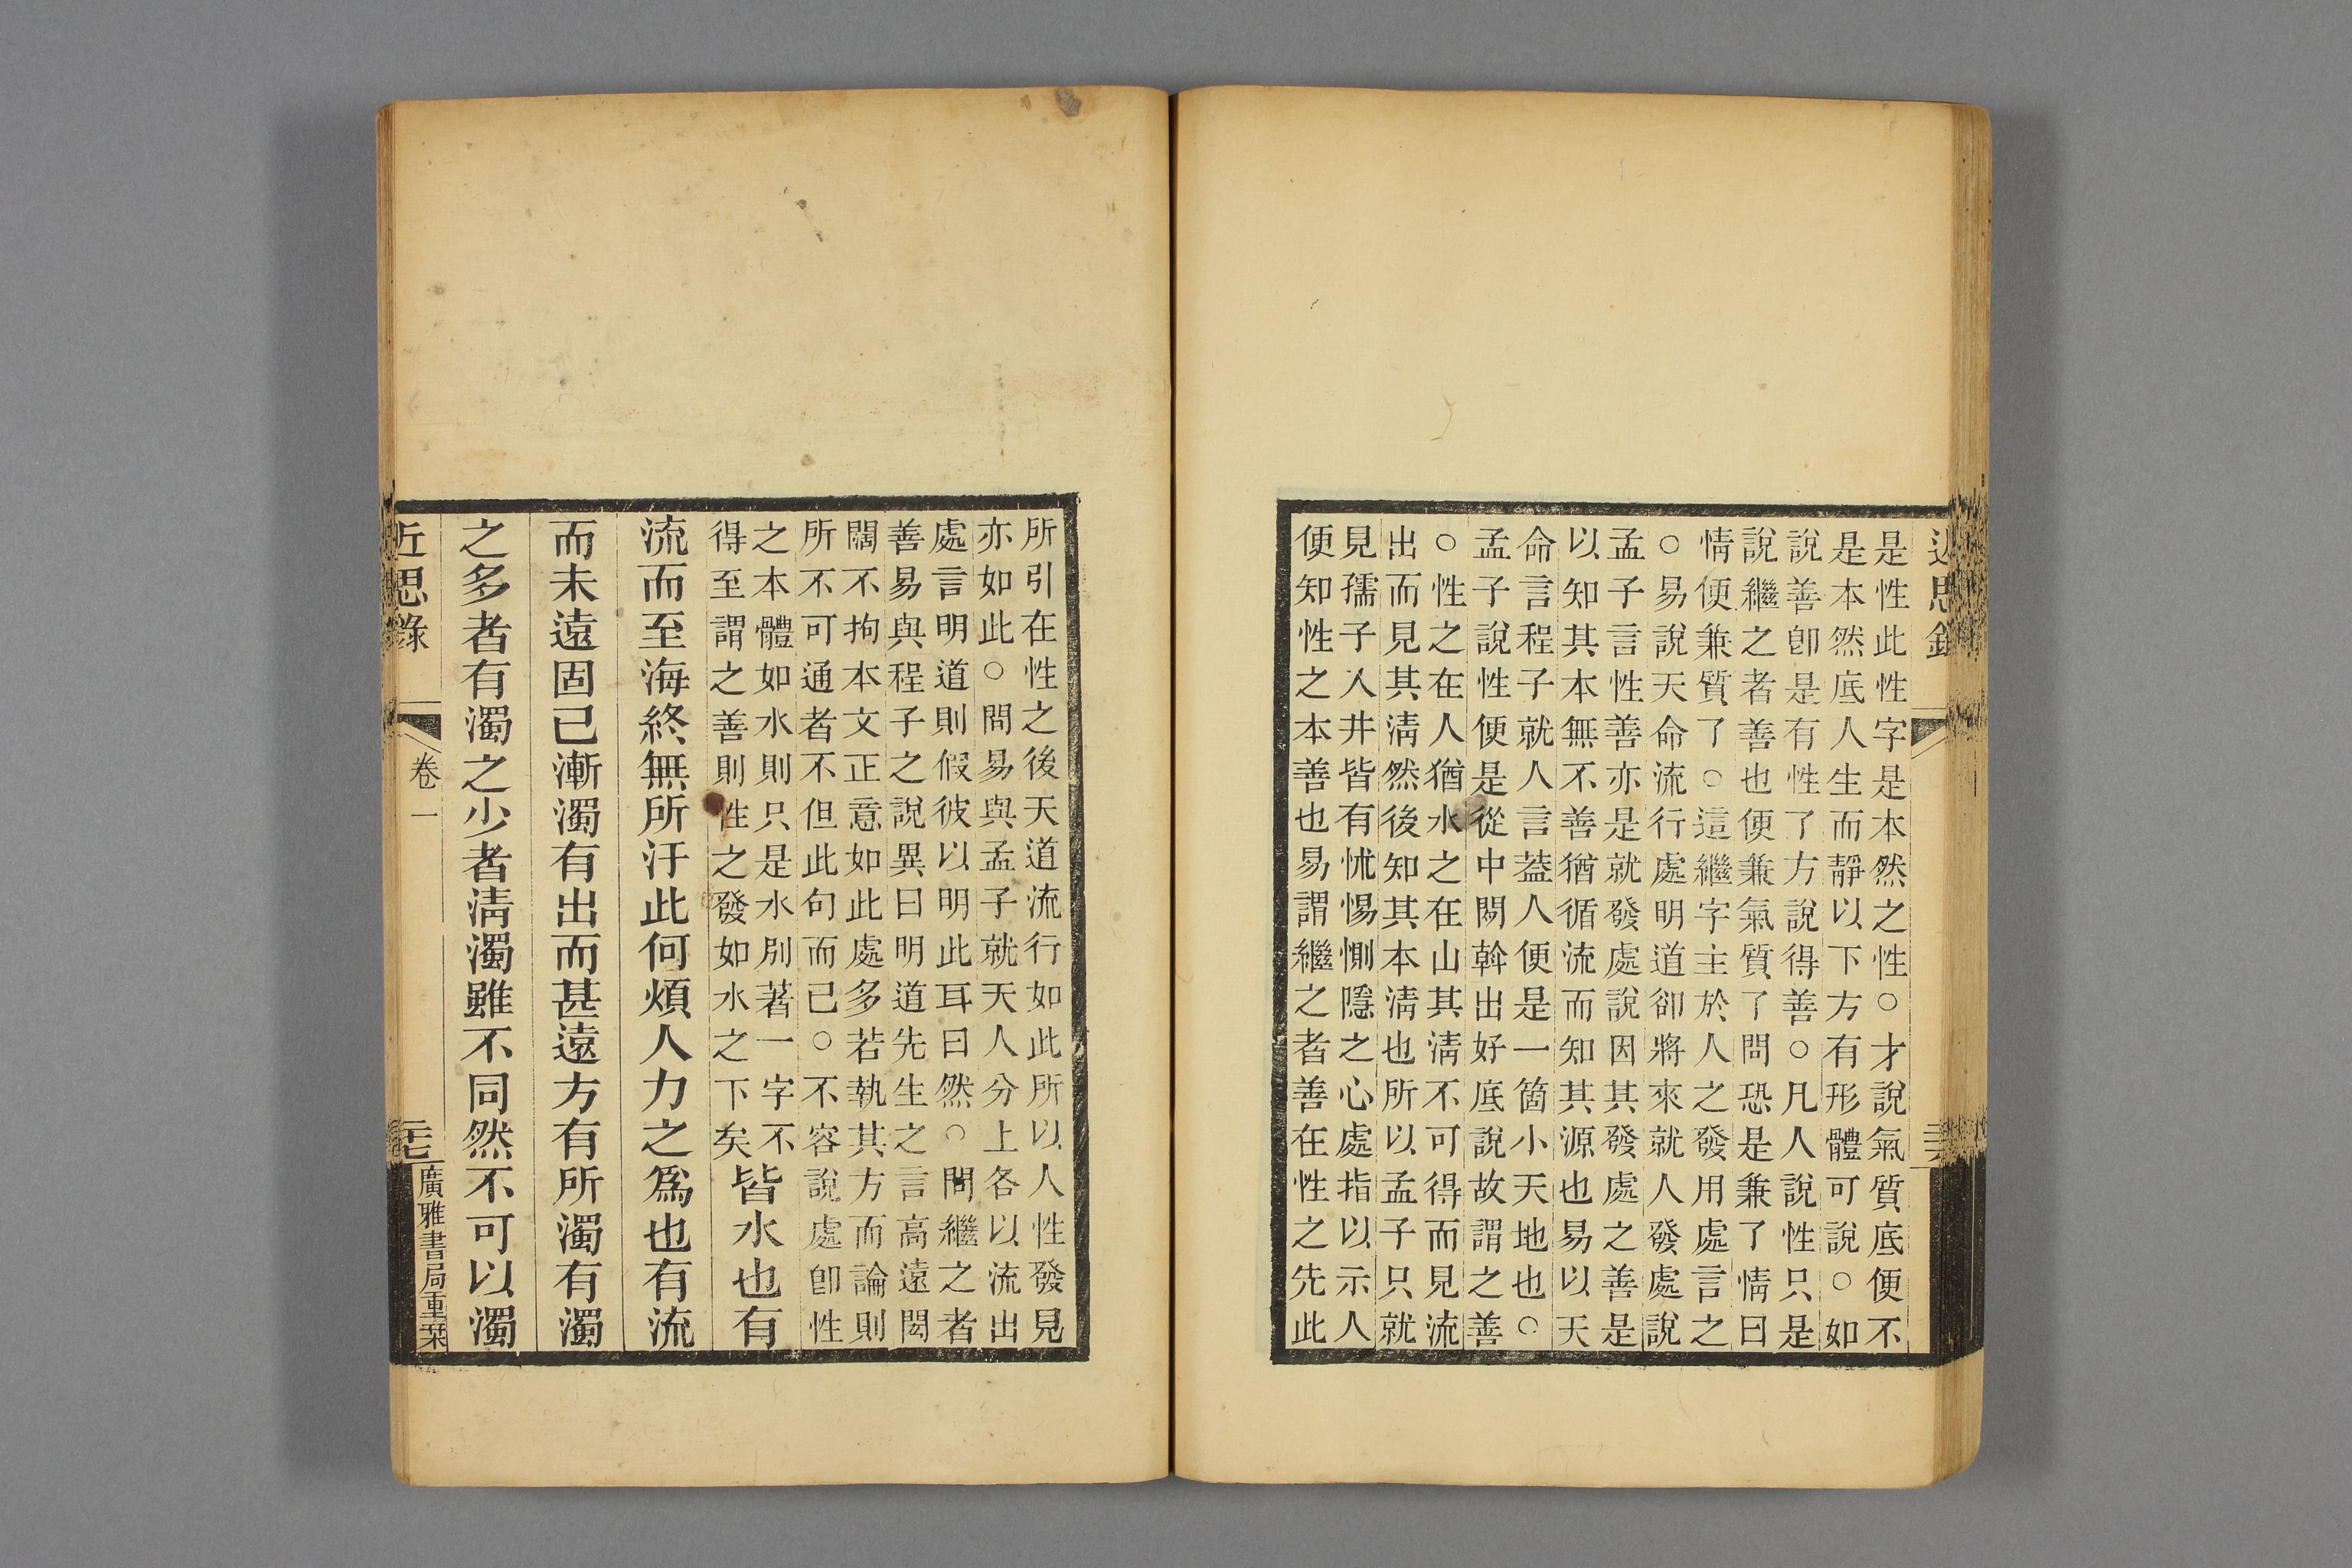 近思錄
是性此性字是本然之性○才說氣質底便不
是本然底人生而靜以下方有形體可說○如
說善卽是有性了方說得善○凡人說性只是
說繼之者善也便兼氣質了問恐是兼了情曰
情便兼質了○這繼字主於人之發用處言之
○易說天命流行處明道卻將來就人發處說
孟子言性善亦是就發處說因其發處之善是
以知其本無不善猶循流而知其源也易以天
命言程子就人言葢人便是一箇小天地也○
孟子說性便是從中閒斡出好底說故謂之善
○性之在人猶水之在山其淸不可得而見流
出而見其淸然後知其本淸也所以孟子只就
見孺子入井皆有怵惕惻隱之心處指以示人
便知性之本善也易謂繼之者善在性之先此
所引在性之後天道流行如此所以人性發見
亦如此○問易與孟子就天人分上各以流出
處言明道則假彼以明此耳曰然○問繼之者
善易與程子之說異曰明道先生之言高遠閎
闊不拘本文正意如此處多若執其方而論則
所不可通者不但此句而已○不容說處卽性
之本體如水則只是水別著一字不
得至謂之善則性之發如水之下矣
皆水也有
流而至海終無所汙此何煩人力之爲也有流
而未遠固已漸濁有出而甚遠方有所濁有濁
之多者有濁之少者淸濁雖不同然不可以濁
近思錄
卷一
廣雅書局重栞